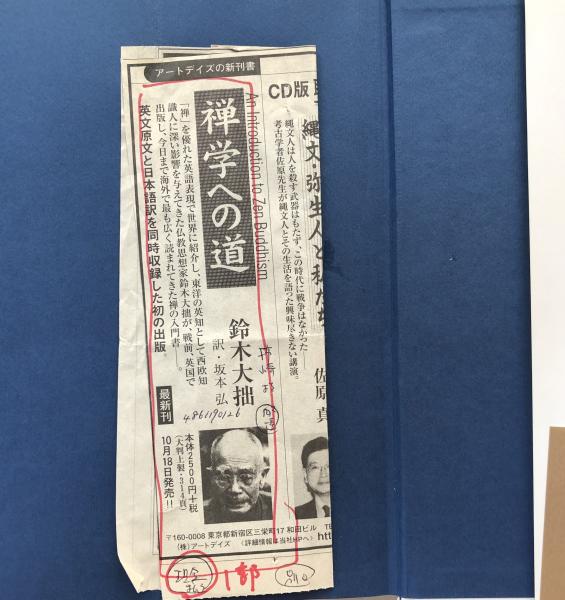 アートデイズの新刊書
An Introduction to Zen Buddhism
禅学への道
鈴木大拙
訳・坂本 弘
「禅」を優れた英語表現で世界に紹介し、東洋の英知として西欧知
識人に深い影響を与えてきた仏教思想家鈴木大拙が、戦前、英国で
出版し、今日まで海外で最も広く読まれてきた禅の入門書――。
英文原文と日本語訳を同時収録した初の出版。
最新刊
本体2500円+税
(大判上製・314頁)
10月18日発売!!
4861190126
CD版
縄文・弥生人と私たち
縄文人は人を殺す武器はもたず、この時代に戦争はなかった
考古学者佐原先生が縄文人とその生活を語った興味尽きない講演。
佐原 真
〒160-0008 東京都新宿区三栄町17 和田ビル TE
(株)アートデイズ 〈詳細情報は当社HPへ〉 htt
現金
払い
1部